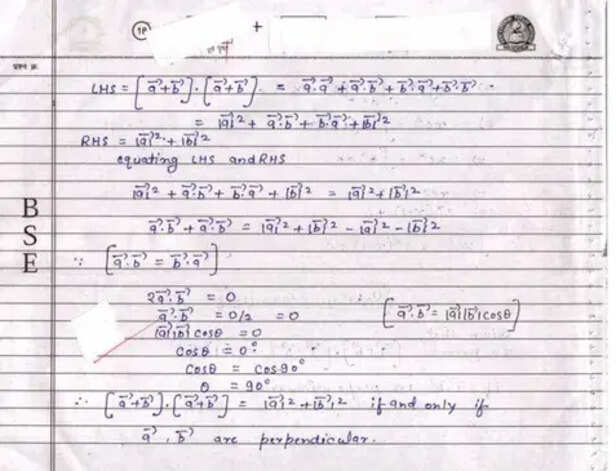 19
+
प्रश्न क्र.
LHS = [a⃗+b⃗]·[a⃗+b⃗] = a⃗·a⃗ + a⃗·b⃗ + b⃗·a⃗ + b⃗·b⃗
= |a⃗|² + a⃗·b⃗ + b⃗·a⃗ + |b⃗|²
RHS = |a⃗|² + |b⃗|²
equating LHS and RHS
|a⃗|² + a⃗·b⃗ + b⃗·a⃗ + |b⃗|² = |a⃗|² + |b⃗|²
a⃗·b⃗ + a⃗·b⃗ = |a⃗|² + |b⃗|² - |a⃗|² - |b⃗|²
∵ [a⃗·b⃗ = b⃗·a⃗]
2a⃗·b⃗ = 0
a⃗·b⃗ = 0/2 = 0 [a⃗·b⃗ = |a⃗||b⃗|cosθ]
|a⃗||b⃗| cosθ = 0
cosθ = 0°
cosθ = cos90°
θ = 90°
∴ [a⃗+b⃗]·[a⃗+b⃗] = |a⃗|² + |b⃗|² if and only if
a⃗, b⃗ are perpendicular.
B
S
E